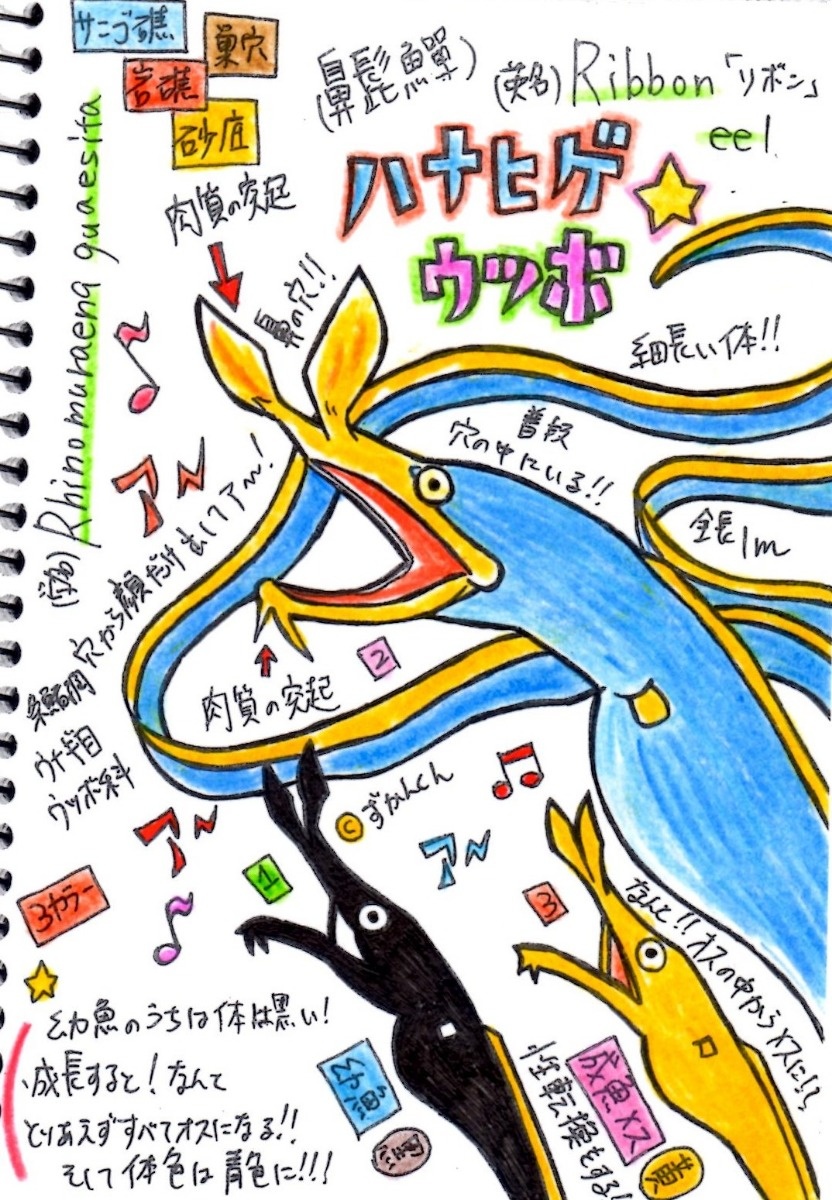 サンゴ礁
巣穴
岩礁
砂底
(鼻髭鱓)
(英名) Ribbon 「リボン」
eel
ハナヒゲ
ウツボ
(学名) Rhinomuraena quaesita
肉質の突起
鼻の穴!!
細長い体!!
普段
穴の中にいる!!
全長1m
ア〜
穴から顔だけ出してア〜!
肉質の突起
2
条鰭綱
ウナギ目
ウツボ科
©ずかんくん
ア〜
ア〜
1
3
3カラー
なんと!!オスの中からメスに!?
幼魚のうちは体は黒い!
成長すると!なんて
とりあえずすべてオスになる!!
そして体色は青色に!!!
幼魚
黒
成魚メス
黄
性転換もする!!